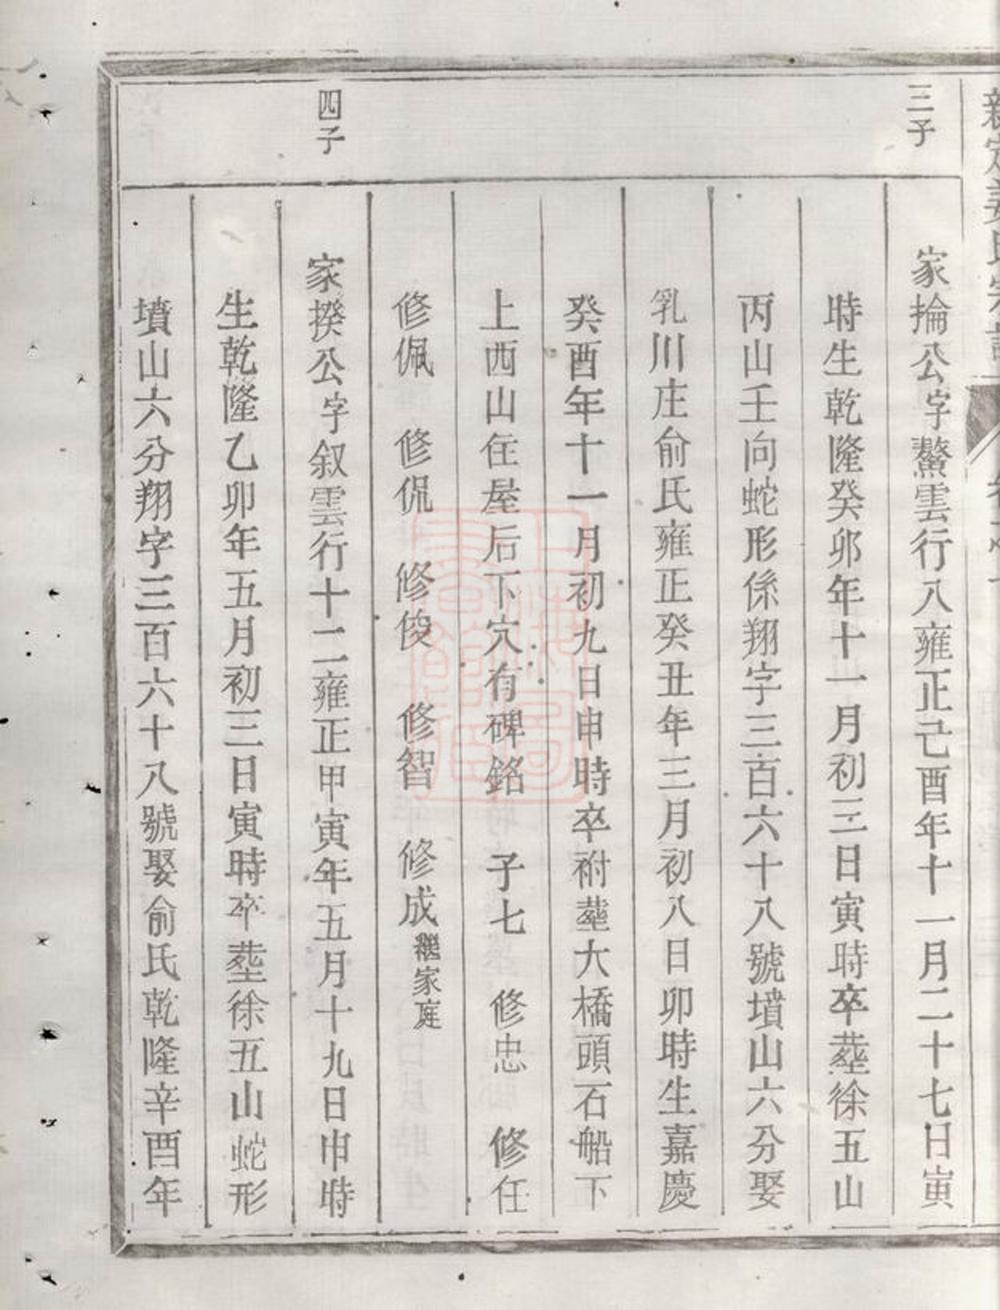 新定姜氏宗譜
三子
家掄公字鰲雲行八雍正己酉年十一月二十七日寅
時生乾隆癸卯年十一月初三日寅時卒塟徐五山
丙山壬向蛇形係翔字三百六十八號墳山六分娶
乳川庄俞氏雍正癸丑年三月初八日卯時生嘉慶
癸酉年十一月初九日申時卒祔塟大橋頭石船下
上西山住屋后下穴有碑銘 子七 修忠 修任
修佩 修侃 修俊 修智 修成繼家庭
四子
家揆公字叙雲行十二雍正甲寅年五月十九日申時
生乾隆乙卯年五月初三日寅時卒塟徐五山蛇形
墳山六分翔字三百六十八號娶俞氏乾隆辛酉年